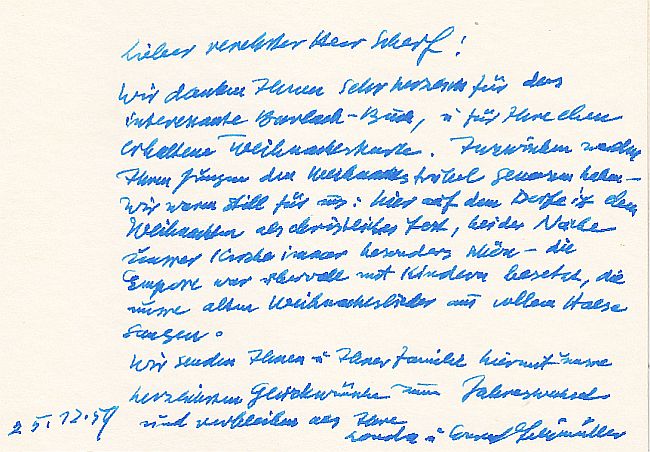 Lieber verehrter Herr Scherf!
Wir danken Ihnen sehr herzlich für das
interessante Barlach-Buch, u für Ihre eben
erhaltene Weihnachtskarte. Inzwischen werden
Ihre Jungen den Weihnachtstrubel genossen haben –
wir waren still für uns: hier auf dem Dorfe ist eben
Weihnachten als christliches Fest, bei der Nähe
unserer Kirche immer besonders schön – die
Empore war überall mit Kindern besetzt, die
unsre alten Weihnachtslieder aus vollem Halse
sangen.
Wir senden Ihnen u Ihrer Familie hiermit unsre
herzlichsten Glückwünsche zum Jahreswechsel
und verbleiben als Ihre
Londa u Conrad Felixmüller
25.12.59